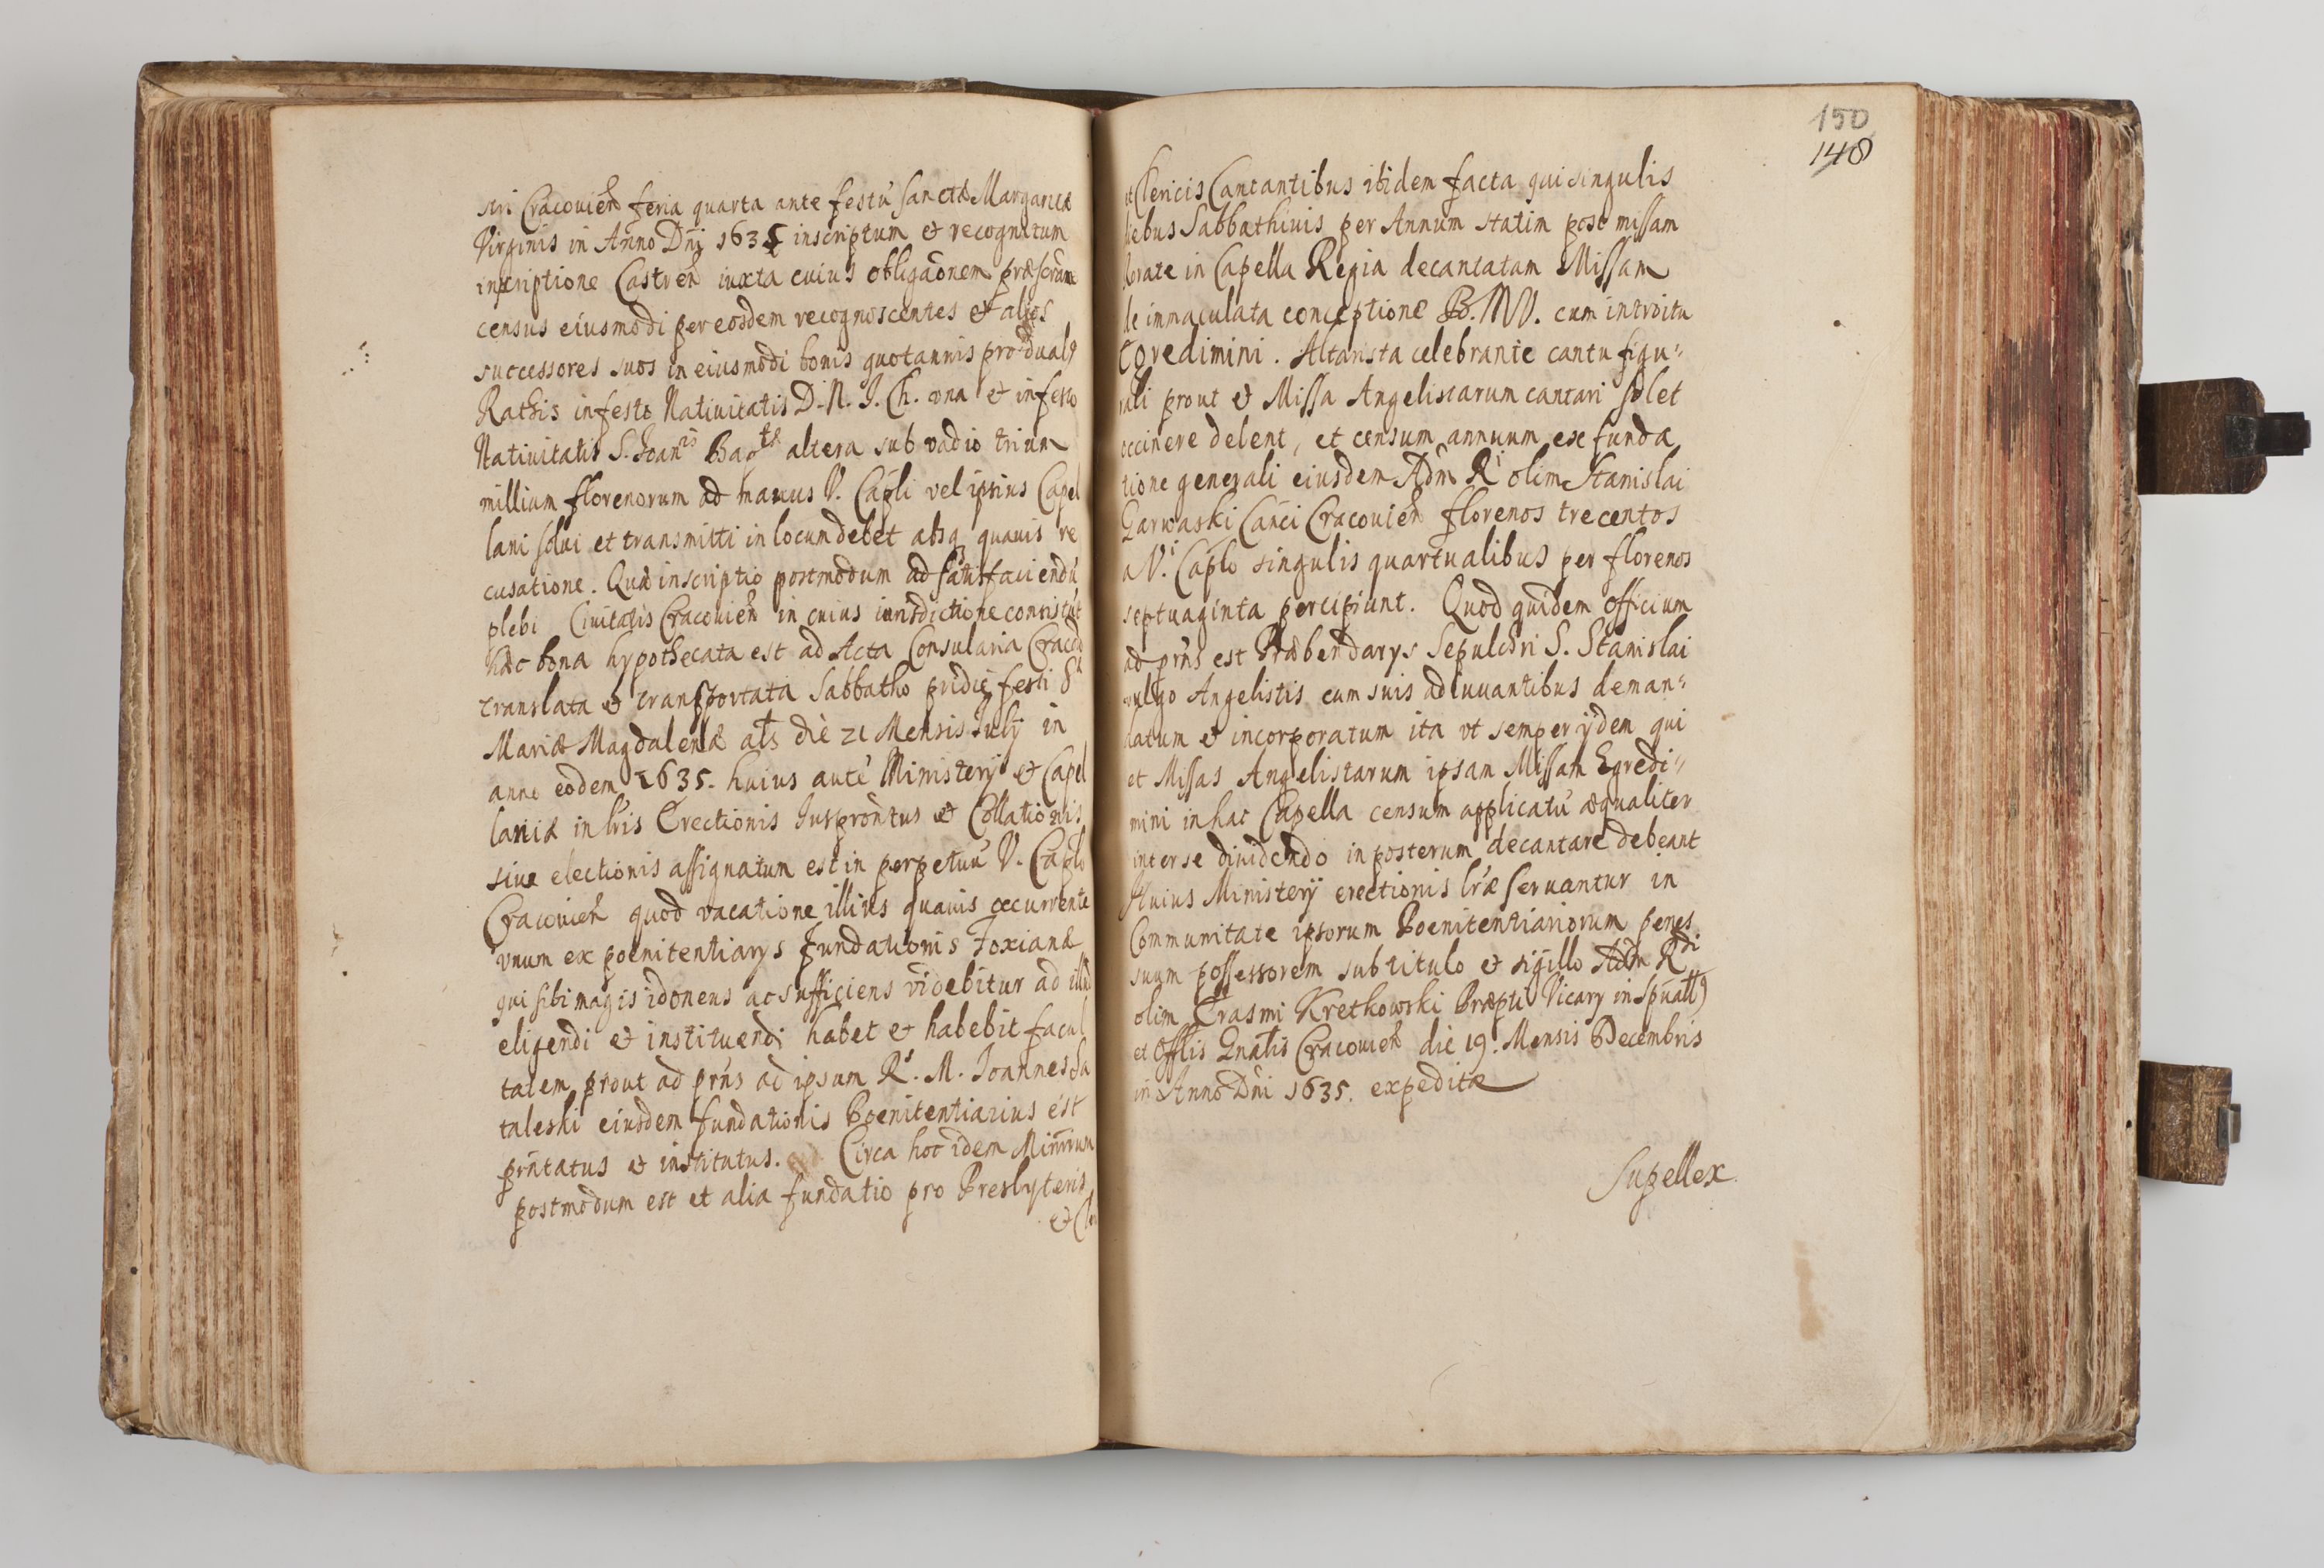 stri Cracouień feria quarta ante festũ sanctæ Margaritæ
Virginis in Anno Dnj 1635 inscriptum et recognitum
inscriptione Castreń iuxta cuius obligaõnem præscrãm
census eiusmodi per eosdem recognoscentes et alios
successores suos in eiusmodi bonis quotannis pro dualȝ
Rathis in festo Natiuitatis D. N. J. Ch. vna et in festo
Natiuitatis S. Joanis Bapts altera sub vadio trium
millium florenorum ad manus V. Capli vel ipsius Capel
lani solui et transmitti in locum debet absq quauis re
cusatione. Quæ inscriptio postmodum ad satisfaciendũ
plebi Ciuitatis Cracouień in cuius iurisdictione consistũt
hæc bona hypothecata est ad Acta Consularia Cracou
translata et transportata Sabbatho pridie festi St
Mariæ Magdalenæ als die 21 Mensis Julij in
anno eodem 1635. huius autẽ Ministerij et Capel
laniæ in lris Erectionis Jusprontus et Collationis
siue electionis assignatum est in perpetuũ V. Caplo
Cracouień quod vacatione illius quauis occurrente
vnum ex poenitentiarys fundationis Foxianæ
qui sibi magis idoneus ac sufficiens videbitur ad illud
eligendi et instituendi habet et habebit facul
tatem prout ad prns ad ipsam Rs. M. Joannes Sa
taleski eiusdem fundationis Poenitentiarius est
prntatus et institutus. Circa hoc idem Minrrium
postmodum est et alia fundatio pro Presbyteris
et Cler
150
148
et Clericis Cantantibus ibidem facta qui singulis
diebus Sabbathinis per Annum statim post missam
Rorate in Capella Regia decantatam Missam
de immaculata conceptione B. M. V. cum introitu
Egredimini. Altarista celebrante cantu figu"
rali prout et Missa Angelistarum cantari solet
occinere debent, et censum annuum ex funda
tione generali eiusdem Adm Ri olim Stanislai
Garwaski Canci Cracouień florenos trecentos
a V.i Caplo singulis quartualibus per florenos
septuaginta percipiunt. Quod quidem officium
ad prns est Præbendarys Sepulchri S. Stanislai
vulgo Angelistis cum suis adiuuantibus deman"
datum et incorporatum ita vt semper ijdem qui
et Missas Angelistarum ipsam Missam Egredi"
mini in hac Capella censum applicatũ æqualiter
inter se diuidendo in posterum decantare debeant
Huius Ministerij erectionis lræ seruantur in
Communitate ipsorum Poenitentiariorum penes
suum possessorem sub titulo et sigillo Adm Rdi
olim Erasmi Kretkowski Præpti Vicary in Spuallȝ
et Offlis Gnalis Cracouień die 19. Mensis Decembris
in Anno Dni 1635. expeditæ
Supellex